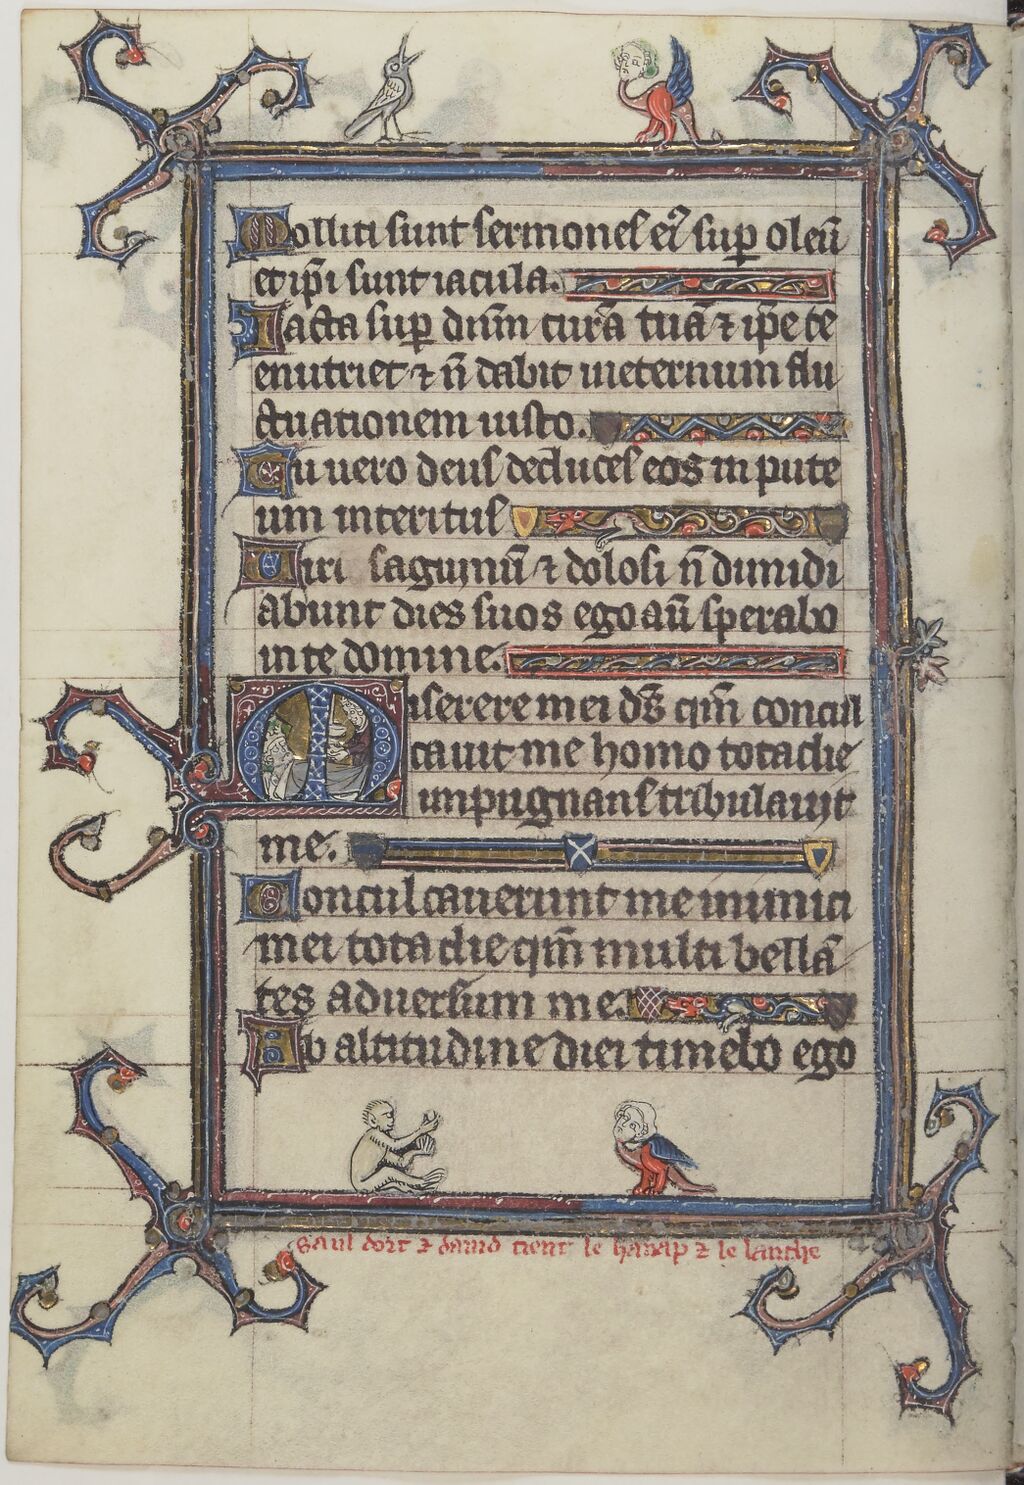 Molliti sunt sermones eiꝰ suꝑ oleū
et ip̄i sunt iacula.
Iacta suꝑ dnm̄ curā tuā ⁊ ip̄e te
enutriet ⁊ n̄ dabit ineternum flu
ctuationem iusto.
Tu uero deus deduces eos in pute
um interitus
Uiri saguinū ⁊ dolosi n̄ dimidi
abunt dies suos ego aū sperabo
in te domine.
Miserere mei ds̄ qm̄ concul
cauit me homo tota die
impugnans tribulauit
me.
Conculcauerunt me inimici
mei tota die qm̄ multi bellā
tes aduersum me.
Ab altitudine diei timebo ego
saul dort ⁊ dauid tient le hanap ⁊ le lanche